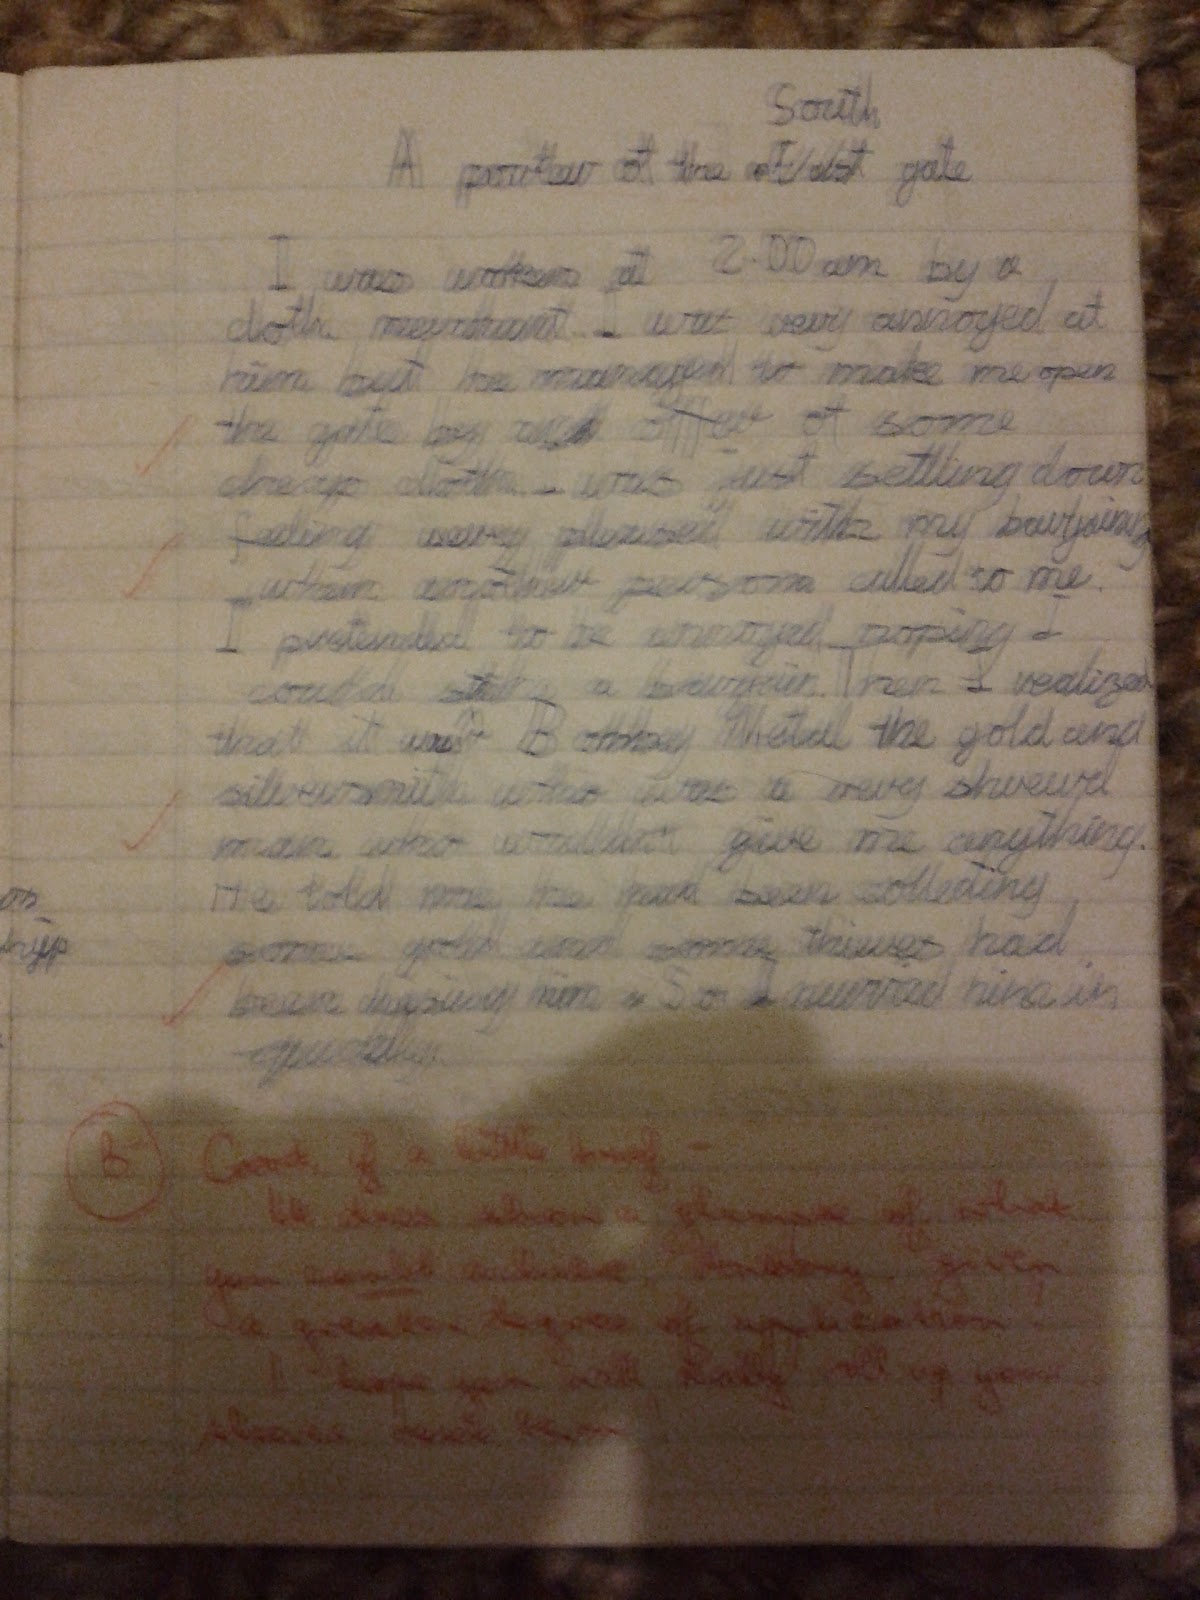 South
A porter at the gate
I was woken at 2.00 am by a
cloth merchant. I was very annoyed at
him but he managed to make me open
the gate by an offer of some
cheap cloth. I was just settling down
feeling very pleased with my
when another person called to me.
I pretended to be annoyed hoping I
could strike a bargain. Then I realized
that it was Metal the gold and
silversmith who was a very shrewd
man who wouldn't give me anything.
He told me he had been collecting
some gold and some thieves had
been him. So I hurried him in
quickly.
on
B Good, if a little brief -
It does show a glimpse of what
you could achieve, given
a greater degree of application.
I hope you will really roll up your
sleeves next term